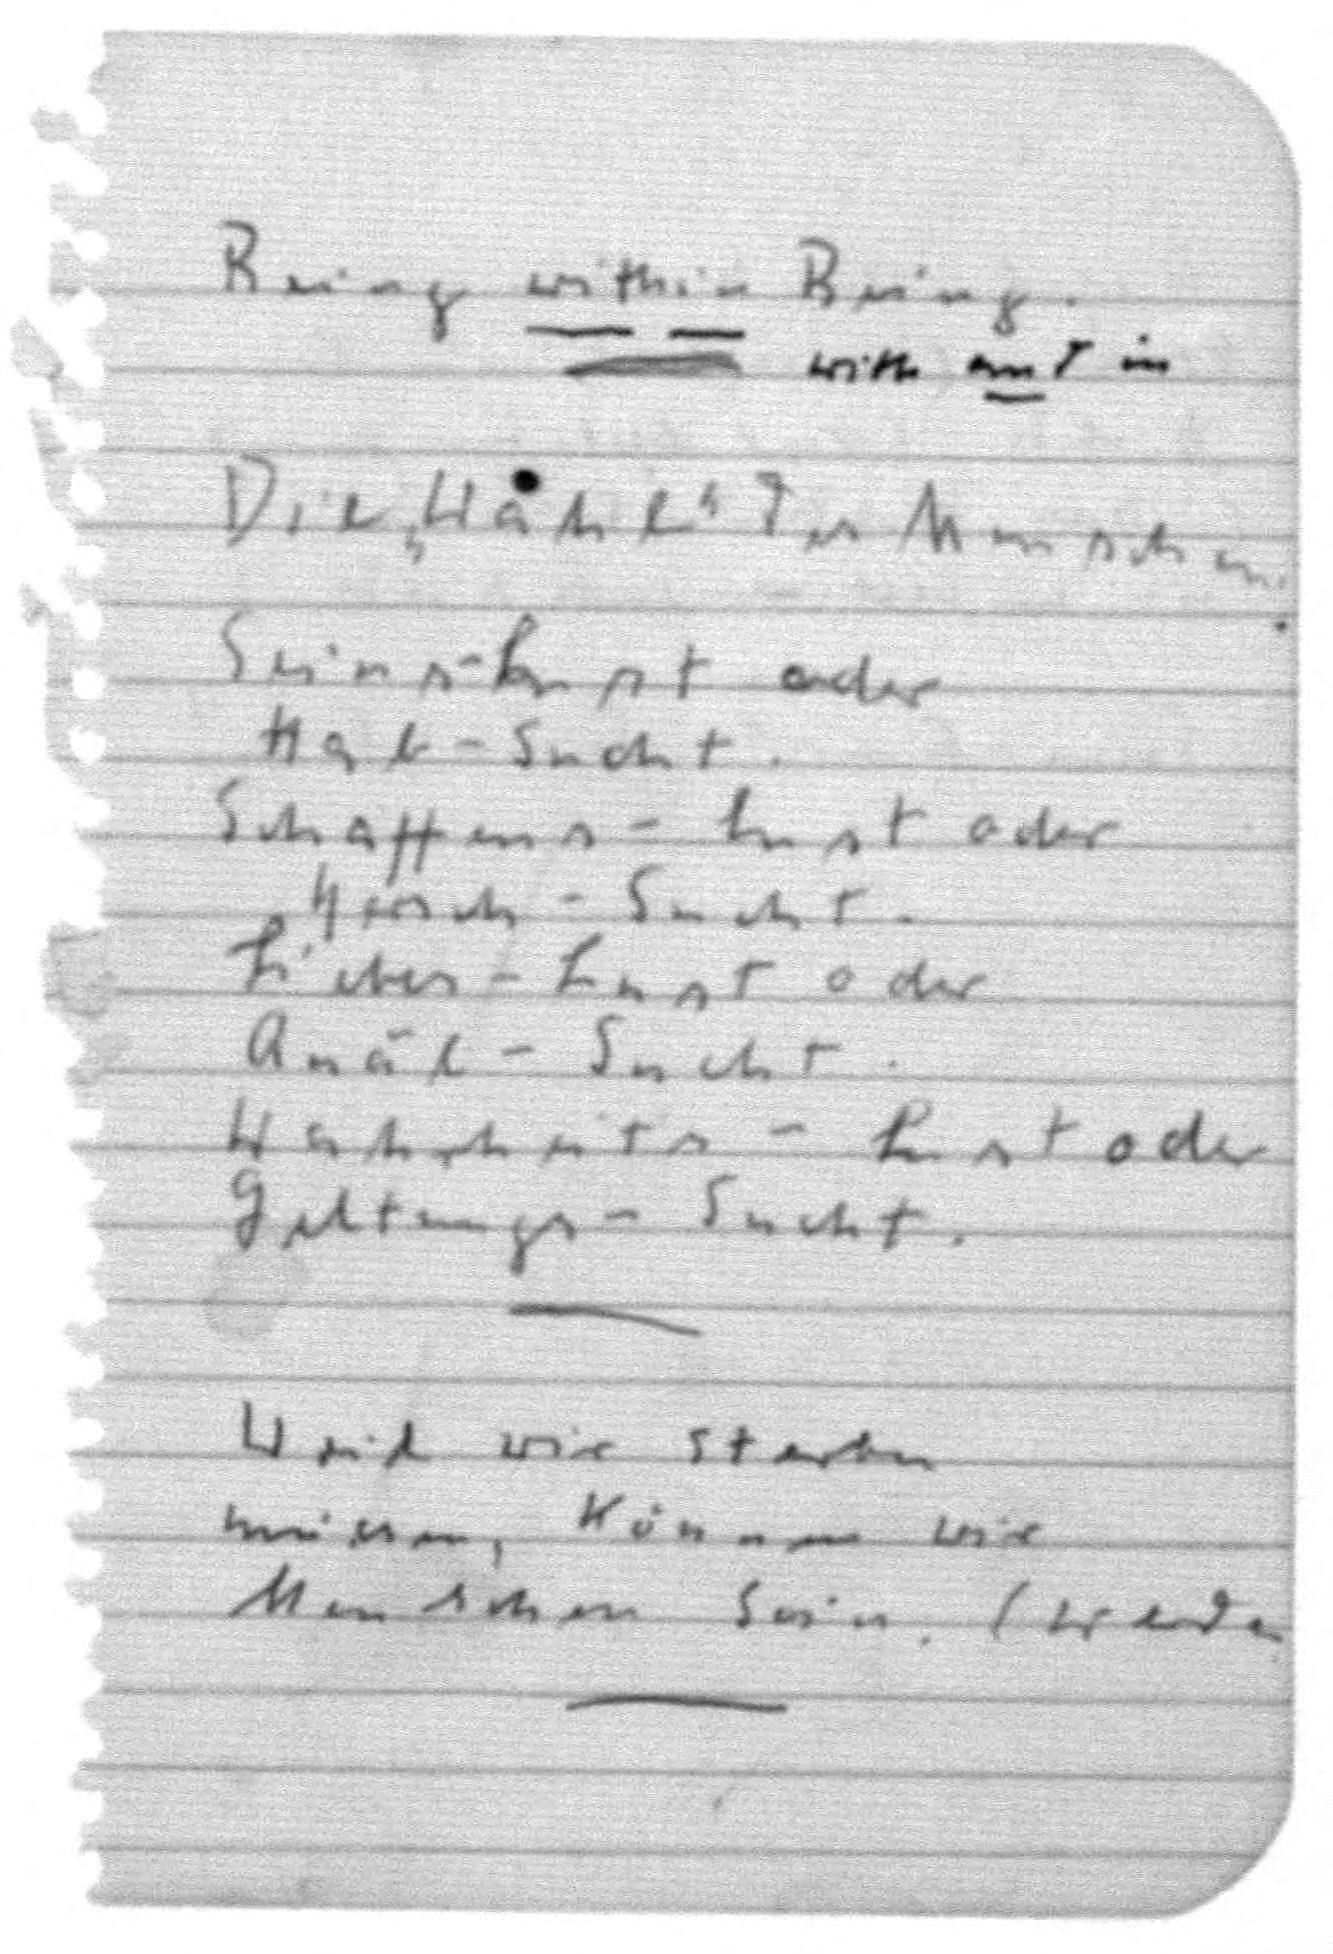 Being within Being.
with und in
Die „Wahl“ des Menschen.
Seins-Lust oder
Hab-Sucht.
Schaffens-Lust oder
Herrsch-Sucht.
Liebes-Lust oder
Quäl-Sucht.
Wahrheits-Lust oder
Geltungs-Sucht.
Weil wir sterben
müssen, können wir
Menschen sein. (werden